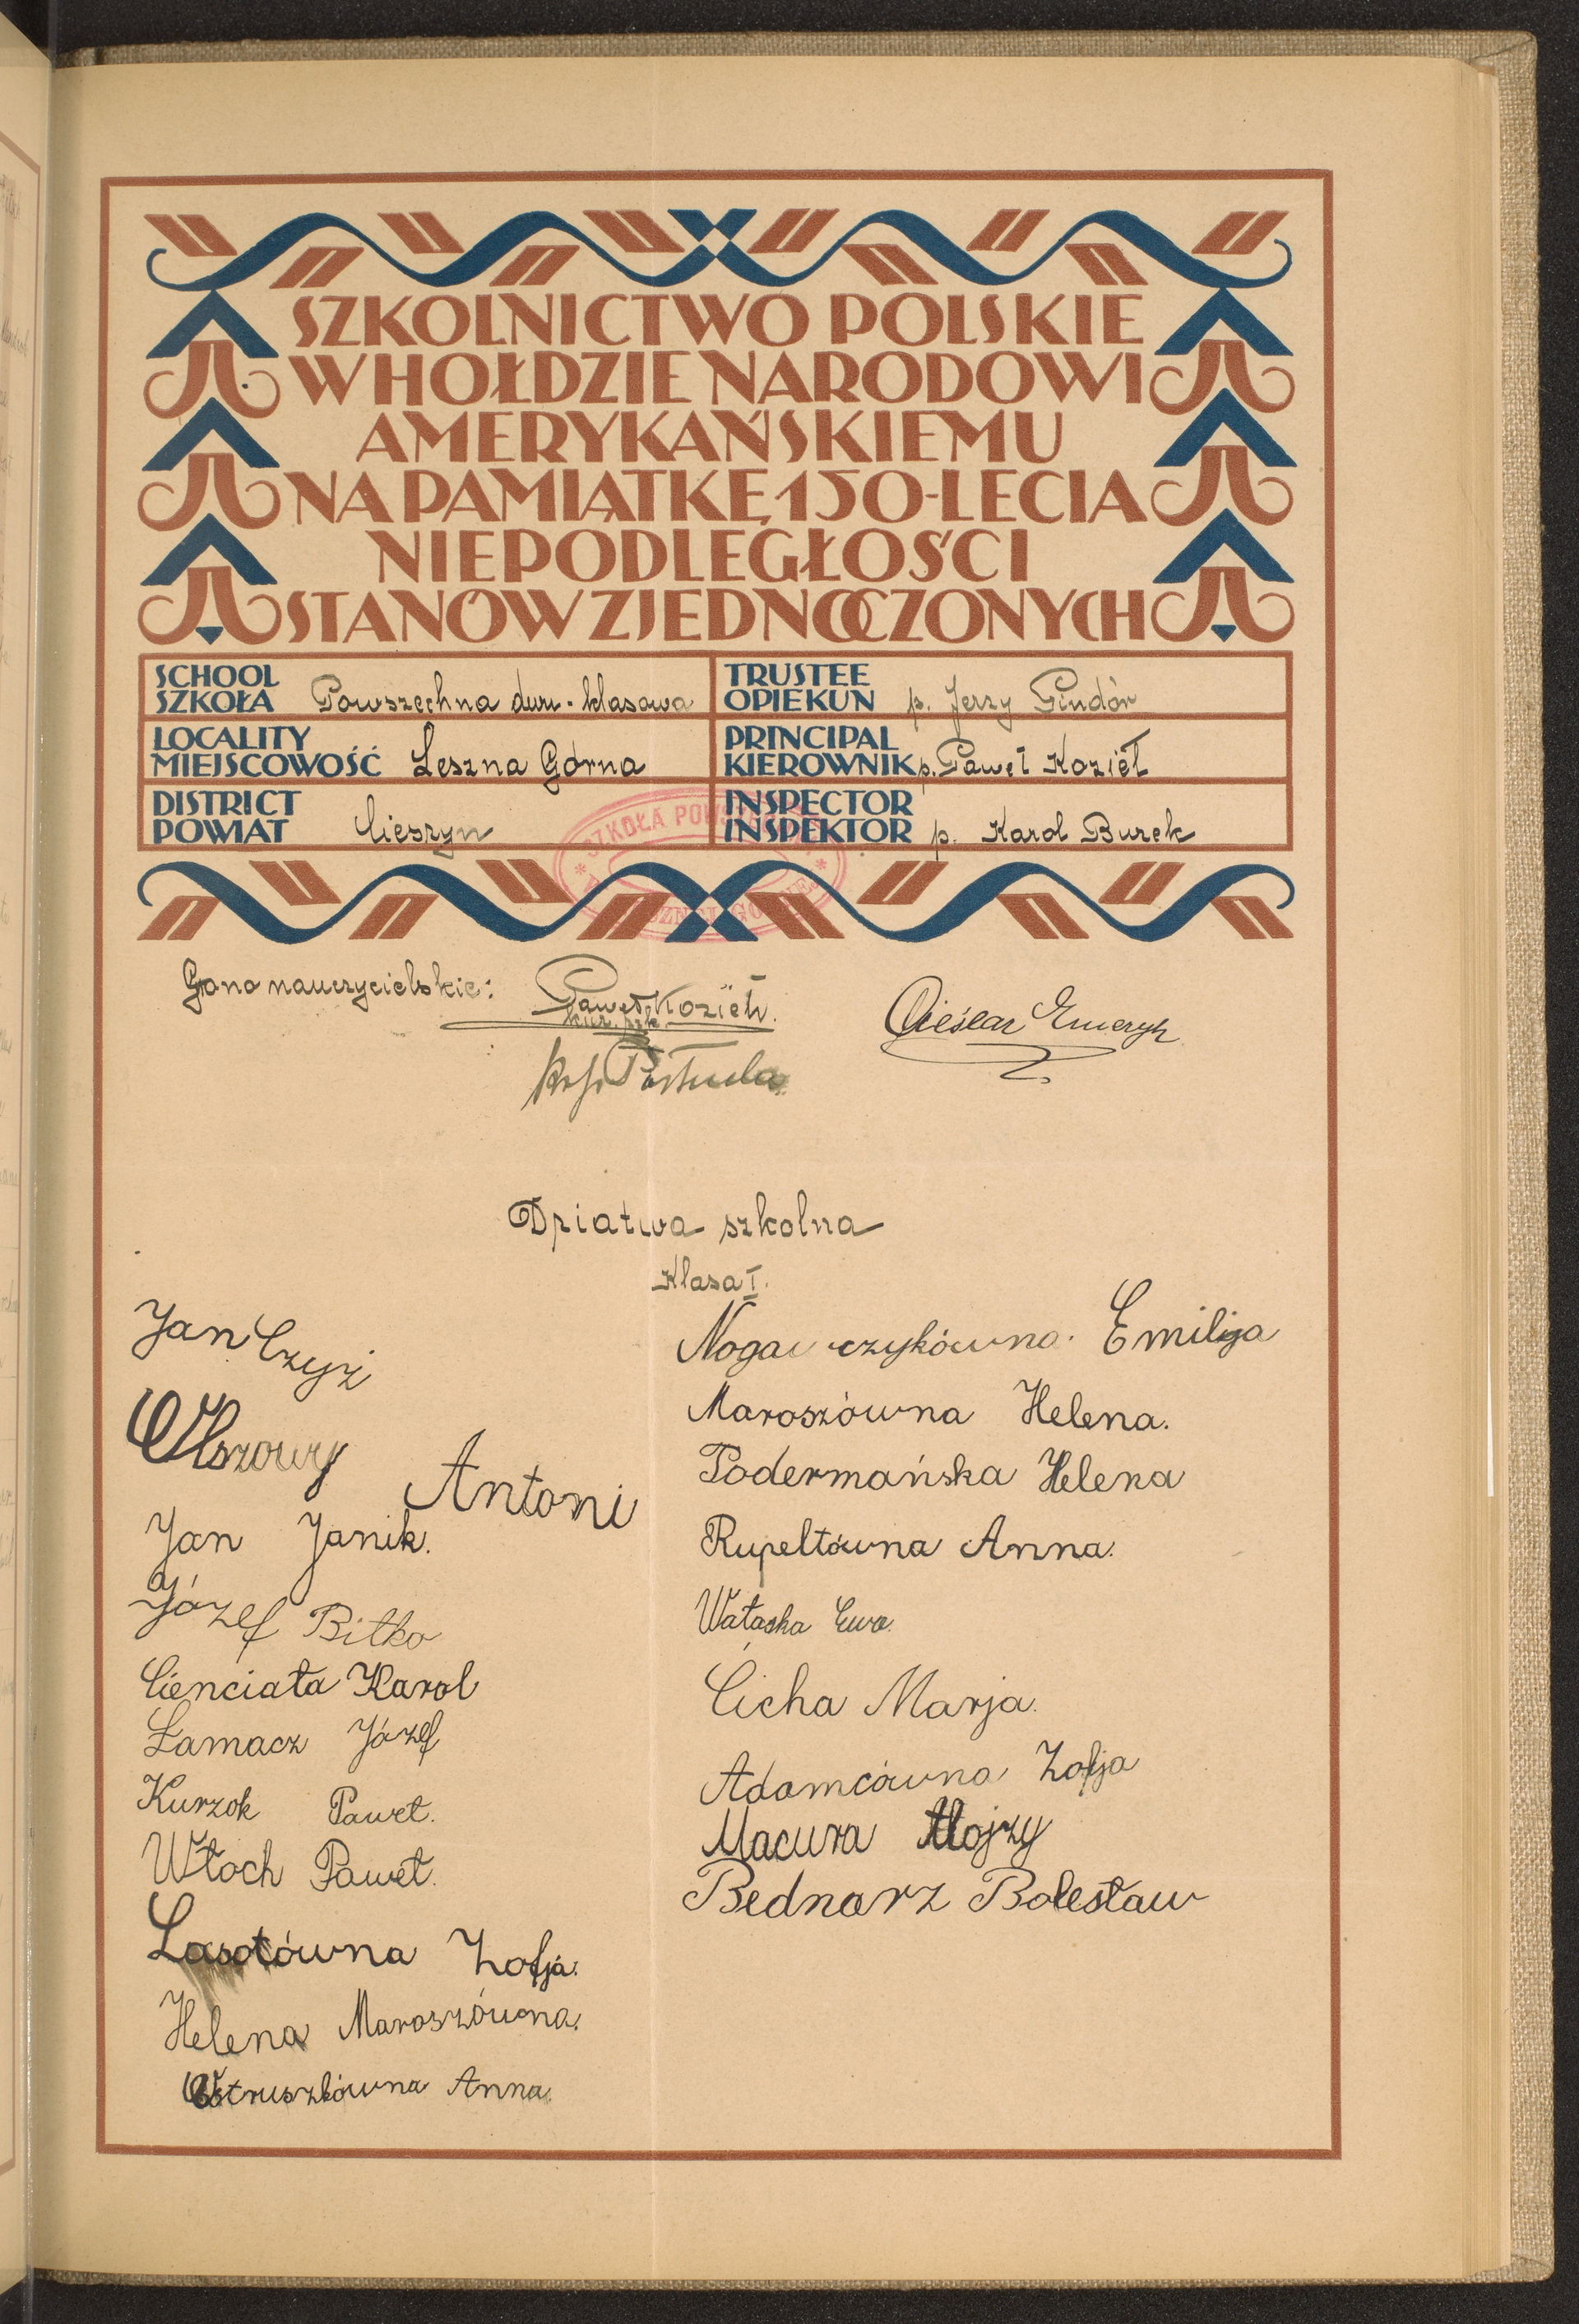 SZKOLNICTWO POLSKIE
W HOŁDZIE NARODOWI
AMERYKAŃSKIEMU
NA PAMIĄTKĘ 150-LECIA
NIEPODLEGŁOŚCI
STANÓW ZJEDNOCZONYCH
SCHOOL
SZKOŁA Powszechna dwu-klasowa
TRUSTEE
OPIEKUN p. Jerzy Pindór
LOCALITY
MIEJSCOWOŚĆ Leszna Górna
PRINCIPAL
KIEROWNIK p. Paweł Kozieł
DISTRICT
POWIAT Cieszyn
INSPECTOR
INSPEKTOR p. Karol Buzek
SZKOŁA
Grono nauczycielskie: Paweł Kozieł.
Cieślar Emeryk
Dziatwa szkolna
Klasa I.
Jan Czyż
Olszowy Antoni
Jan Janik.
Józef Bitko
Cienciała Karol
Łamacz Józef
Kurzok Paweł.
Włoch Paweł.
Lasotówna Zofja.
Helena Maroszówna.
Ostruszkówna Anna.
Nogawczykówna Emilija
Maroszówna Helena.
Podermańska Helena
Rupeltówna Anna.
Wataska Ewa.
Cicha Marja.
Adamcówna Zofja
Macura Alojzy
Bednarz Bolesław